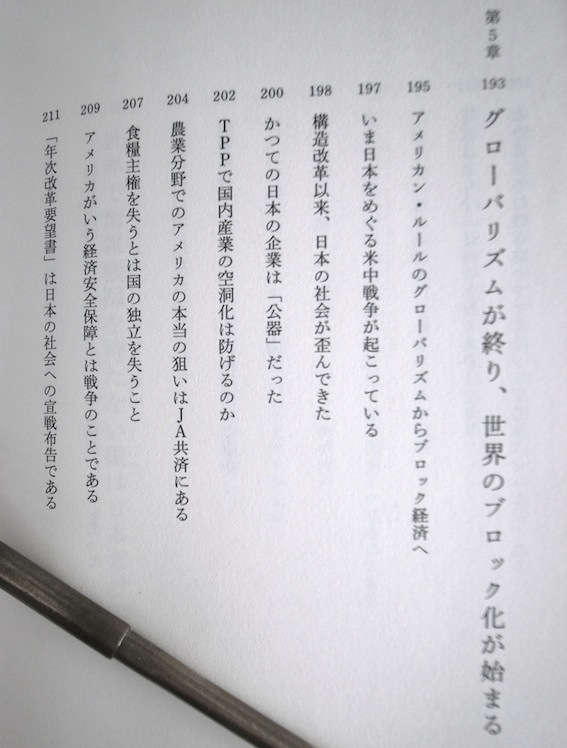 第5章
193 グローバリズムが終り、世界のブロック化が始まる
195 アメリカン・ルールのグローバリズムからブロック経済へ
197 いま日本をめぐる米中戦争が起こっている
198 構造改革以来、日本の社会が歪んできた
200 かつての日本の企業は「公器」だった
202 TPPで国内産業の空洞化は防げるのか
204 農業分野でのアメリカの本当の狙いはJA共済にある
207 食糧主権を失うとは国の独立を失うこと
209 アメリカがいう経済安全保障とは戦争のことである
211 「年次改革要望書」は日本の社会への宣戦布告である